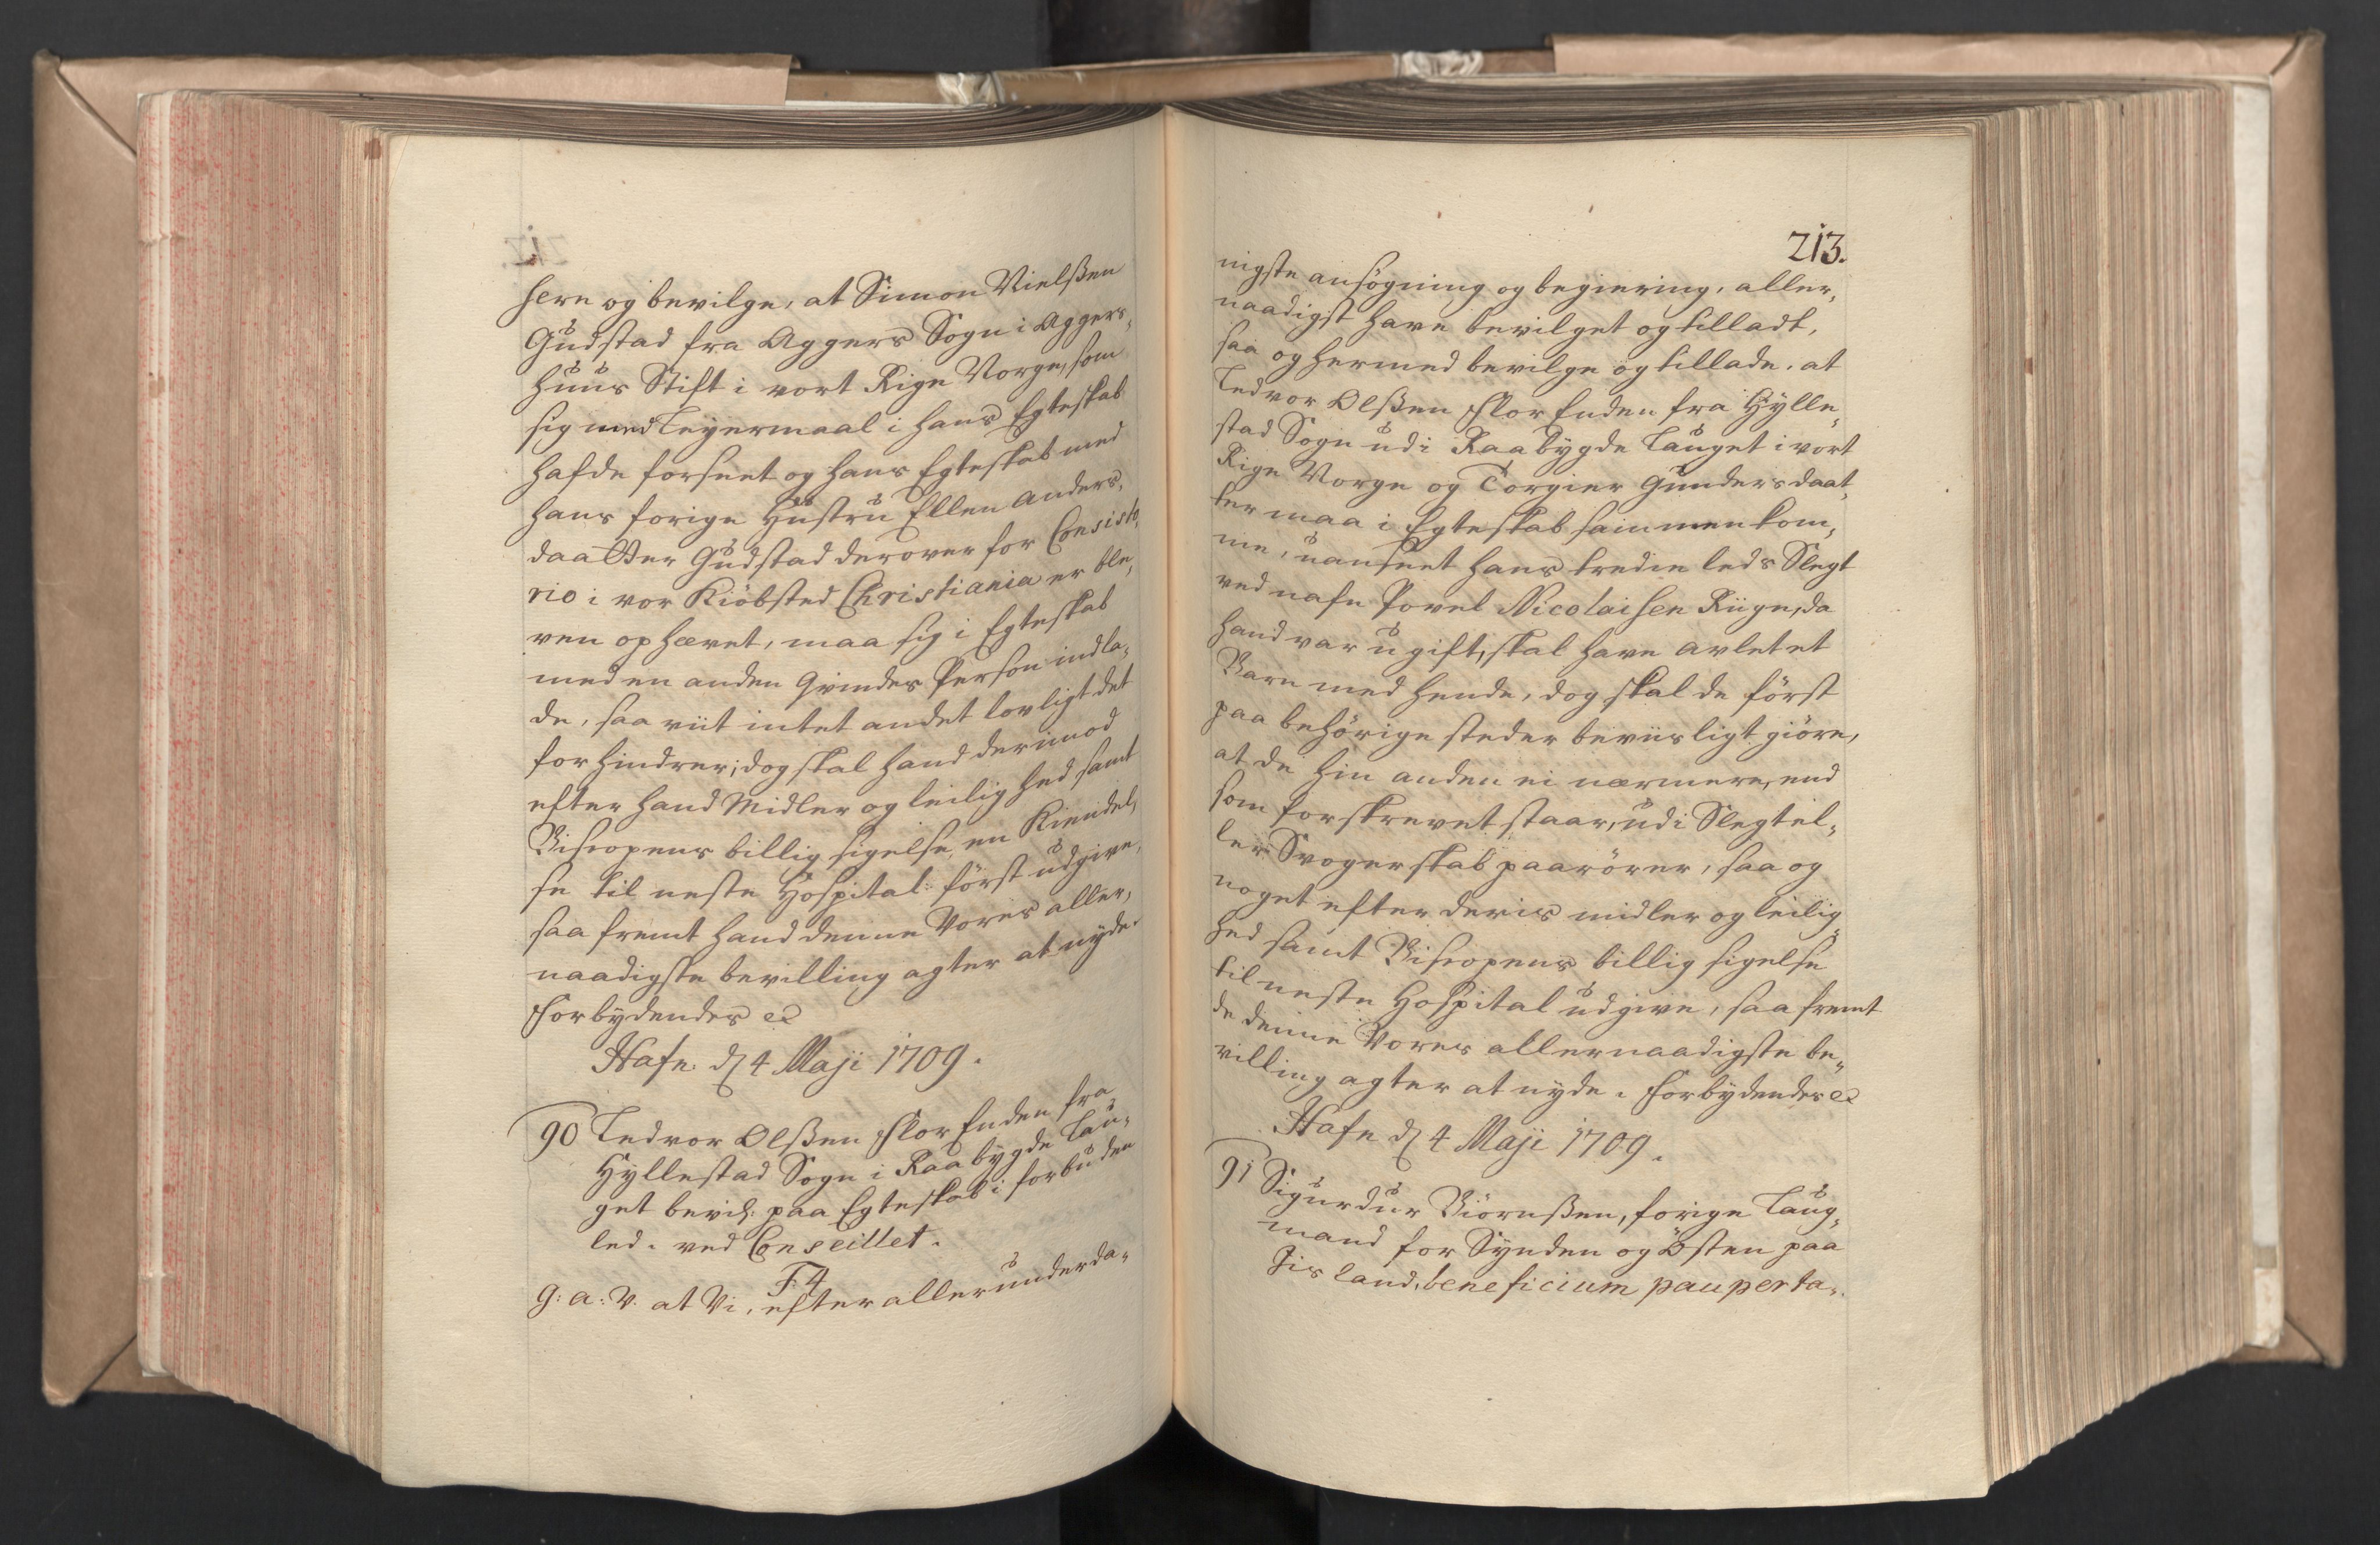 hern og bevilge, at Simon Nielßen
Gudstad fra Aggers Sogn i Agger¬
huus Stift i vort Rige Norge, som
sig med Leyermaal i hans Egteskab
hafde forseet og hans Egteskab med
hans forige Hustru Ellen Anders¬
daatter Gudstad derover for Consisto¬
rio i vor Kiöbsted Christiania er ble¬
ven ophævet, maa sig i Egteskab
med en anden Qvindes Person indla¬
de, saa viit intet andet lovligt det
forhindrer; dog skal hand derimod
efter hand Midler og leilighed samt
Biscopens billig sigelse, en Kiendel¬
se til neste Hospital: först udgive,
saa fremt hand denne Vores aller¬
naadigste bevilling agter at nyde.
Forbydendes etc
Hafn. d. 4 Maji 1709.
90 Tedvor Olßen Flor Enden fra
Hyllestad Sogn i Raabygde Lau¬
get bevil: paa Egteskab i forbuden
led. ved Conseillet.
F: 4
G: a: V: at Vi, efter allerunderda¬
213.
nigste ansögning og begiering, aller¬
naadigst have bevilget og tilladt,
saa og hermed bevilge og tillade, at
Tedvor Olßen Flor Enden fra Hylle¬
stad Sogn udi Raabygde Lauget i vort
Rige Norge og Torgier Gundersdaat¬
ter maa i Egteskab sammenkom¬
me, uanseet hans tredie leds Slegt
ved nafn Povel Nicolaisen Riige, da
hand var ugift, skal have avlet et
Barn med hende, dog skal de först
paa behörige steder beviisligt giöre,
at de hin anden ei nærmere, end
som forskrevet staar, udi Slegt el¬
ler Svogerskab paarörer, saa og
noget efter deris midler og leilig¬
hed samt Biscopens billig sigelse
til neste Hospital udgive, saa fremt
de denne Vores allernaadigste be¬
villing agter at nyde. Forbydendes etc
Hafn d. 4 Maji 1709.
91 Sigurdur Biörnßen, forige Laug¬
mand for Synden og Östen paa
Jisland, beneficium pauperta¬